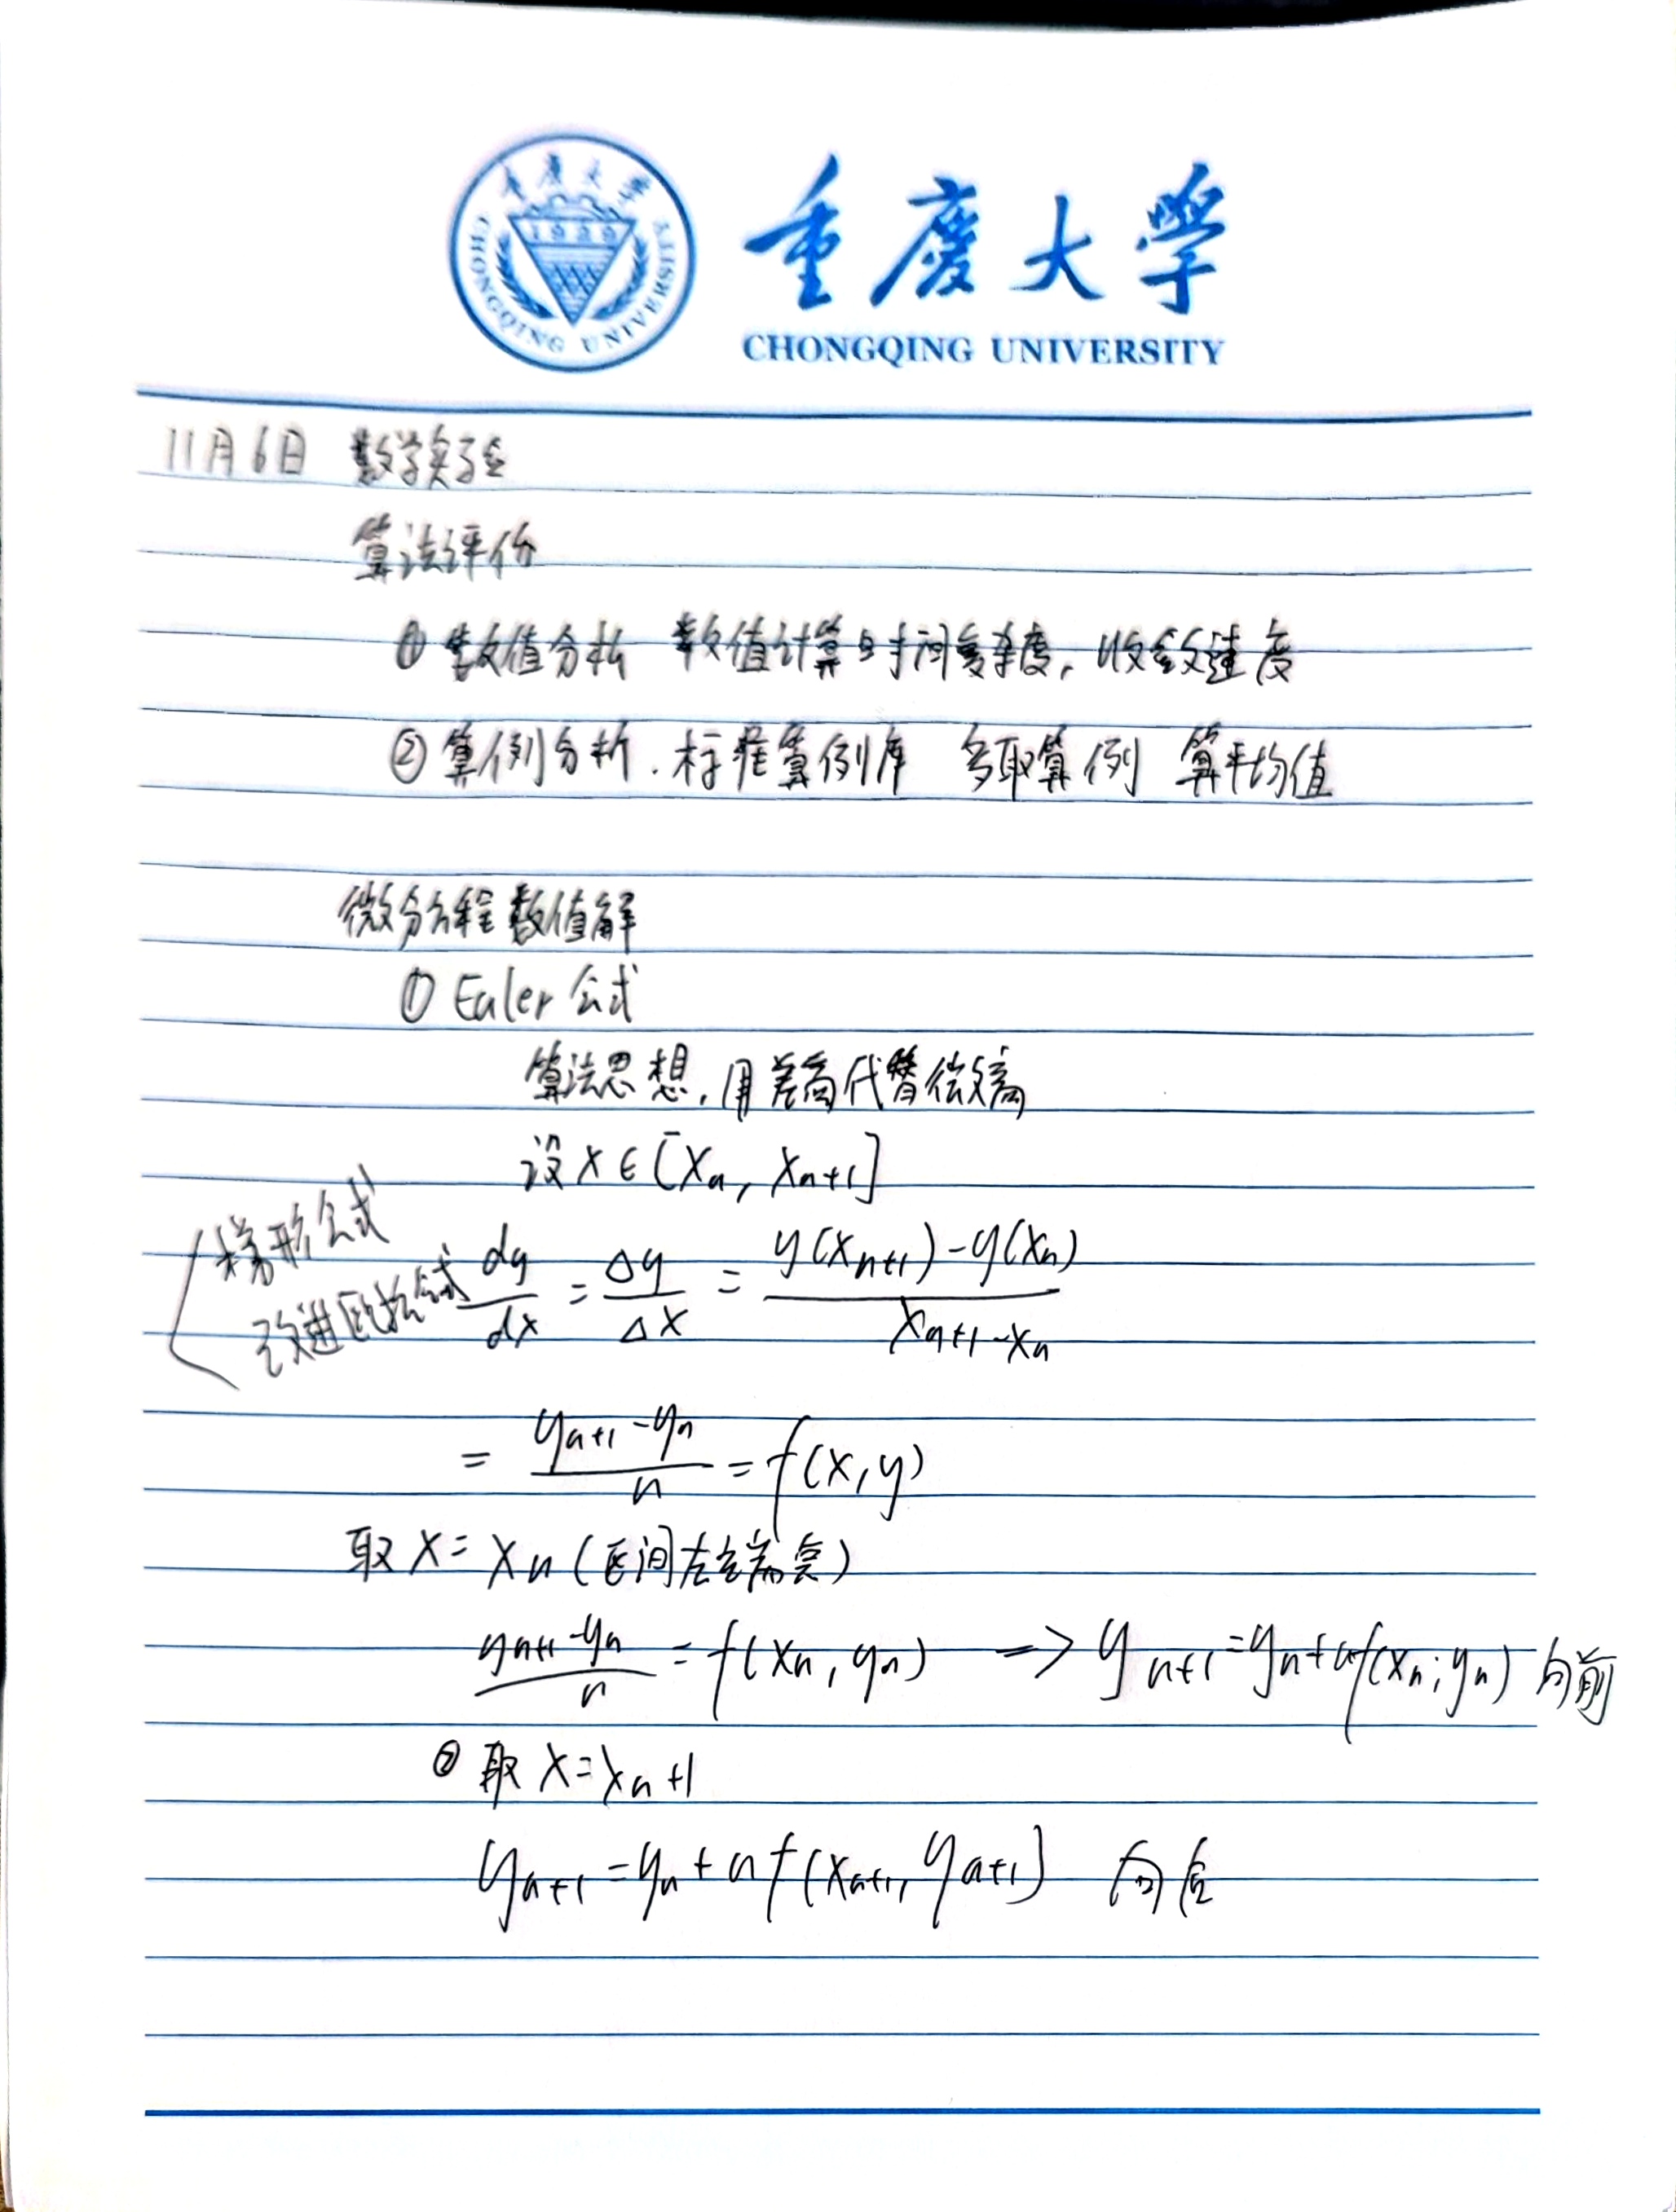 重慶大學
CHONGQING UNIVERSITY
重慶大學
1929
CHONGQING UNIVERSITY
11月6日 数学实验
算法评价
① 数值分析 数值计算时间复杂度, 收敛速度
② 算例分析. 标准算例库 多取算例 算平均值
微分方程数值解
① Euler 公式
算法思想, 用差商代替微商
设 x ∈ [xn, xn+1]
梯形公式
改进欧拉公式
dy/dx = Δy/Δx = (y(xn+1) - y(xn))/(xn+1 - xn)
= (yn+1 - yn)/n = f(x, y)
取 x = xn (区间左端点)
(yn+1 - yn)/n = f(xn, yn) => yn+1 = yn + n f(xn, yn) 向前
② 取 x = xn+1
yn+1 = yn + n f(xn+1, yn+1) 向后